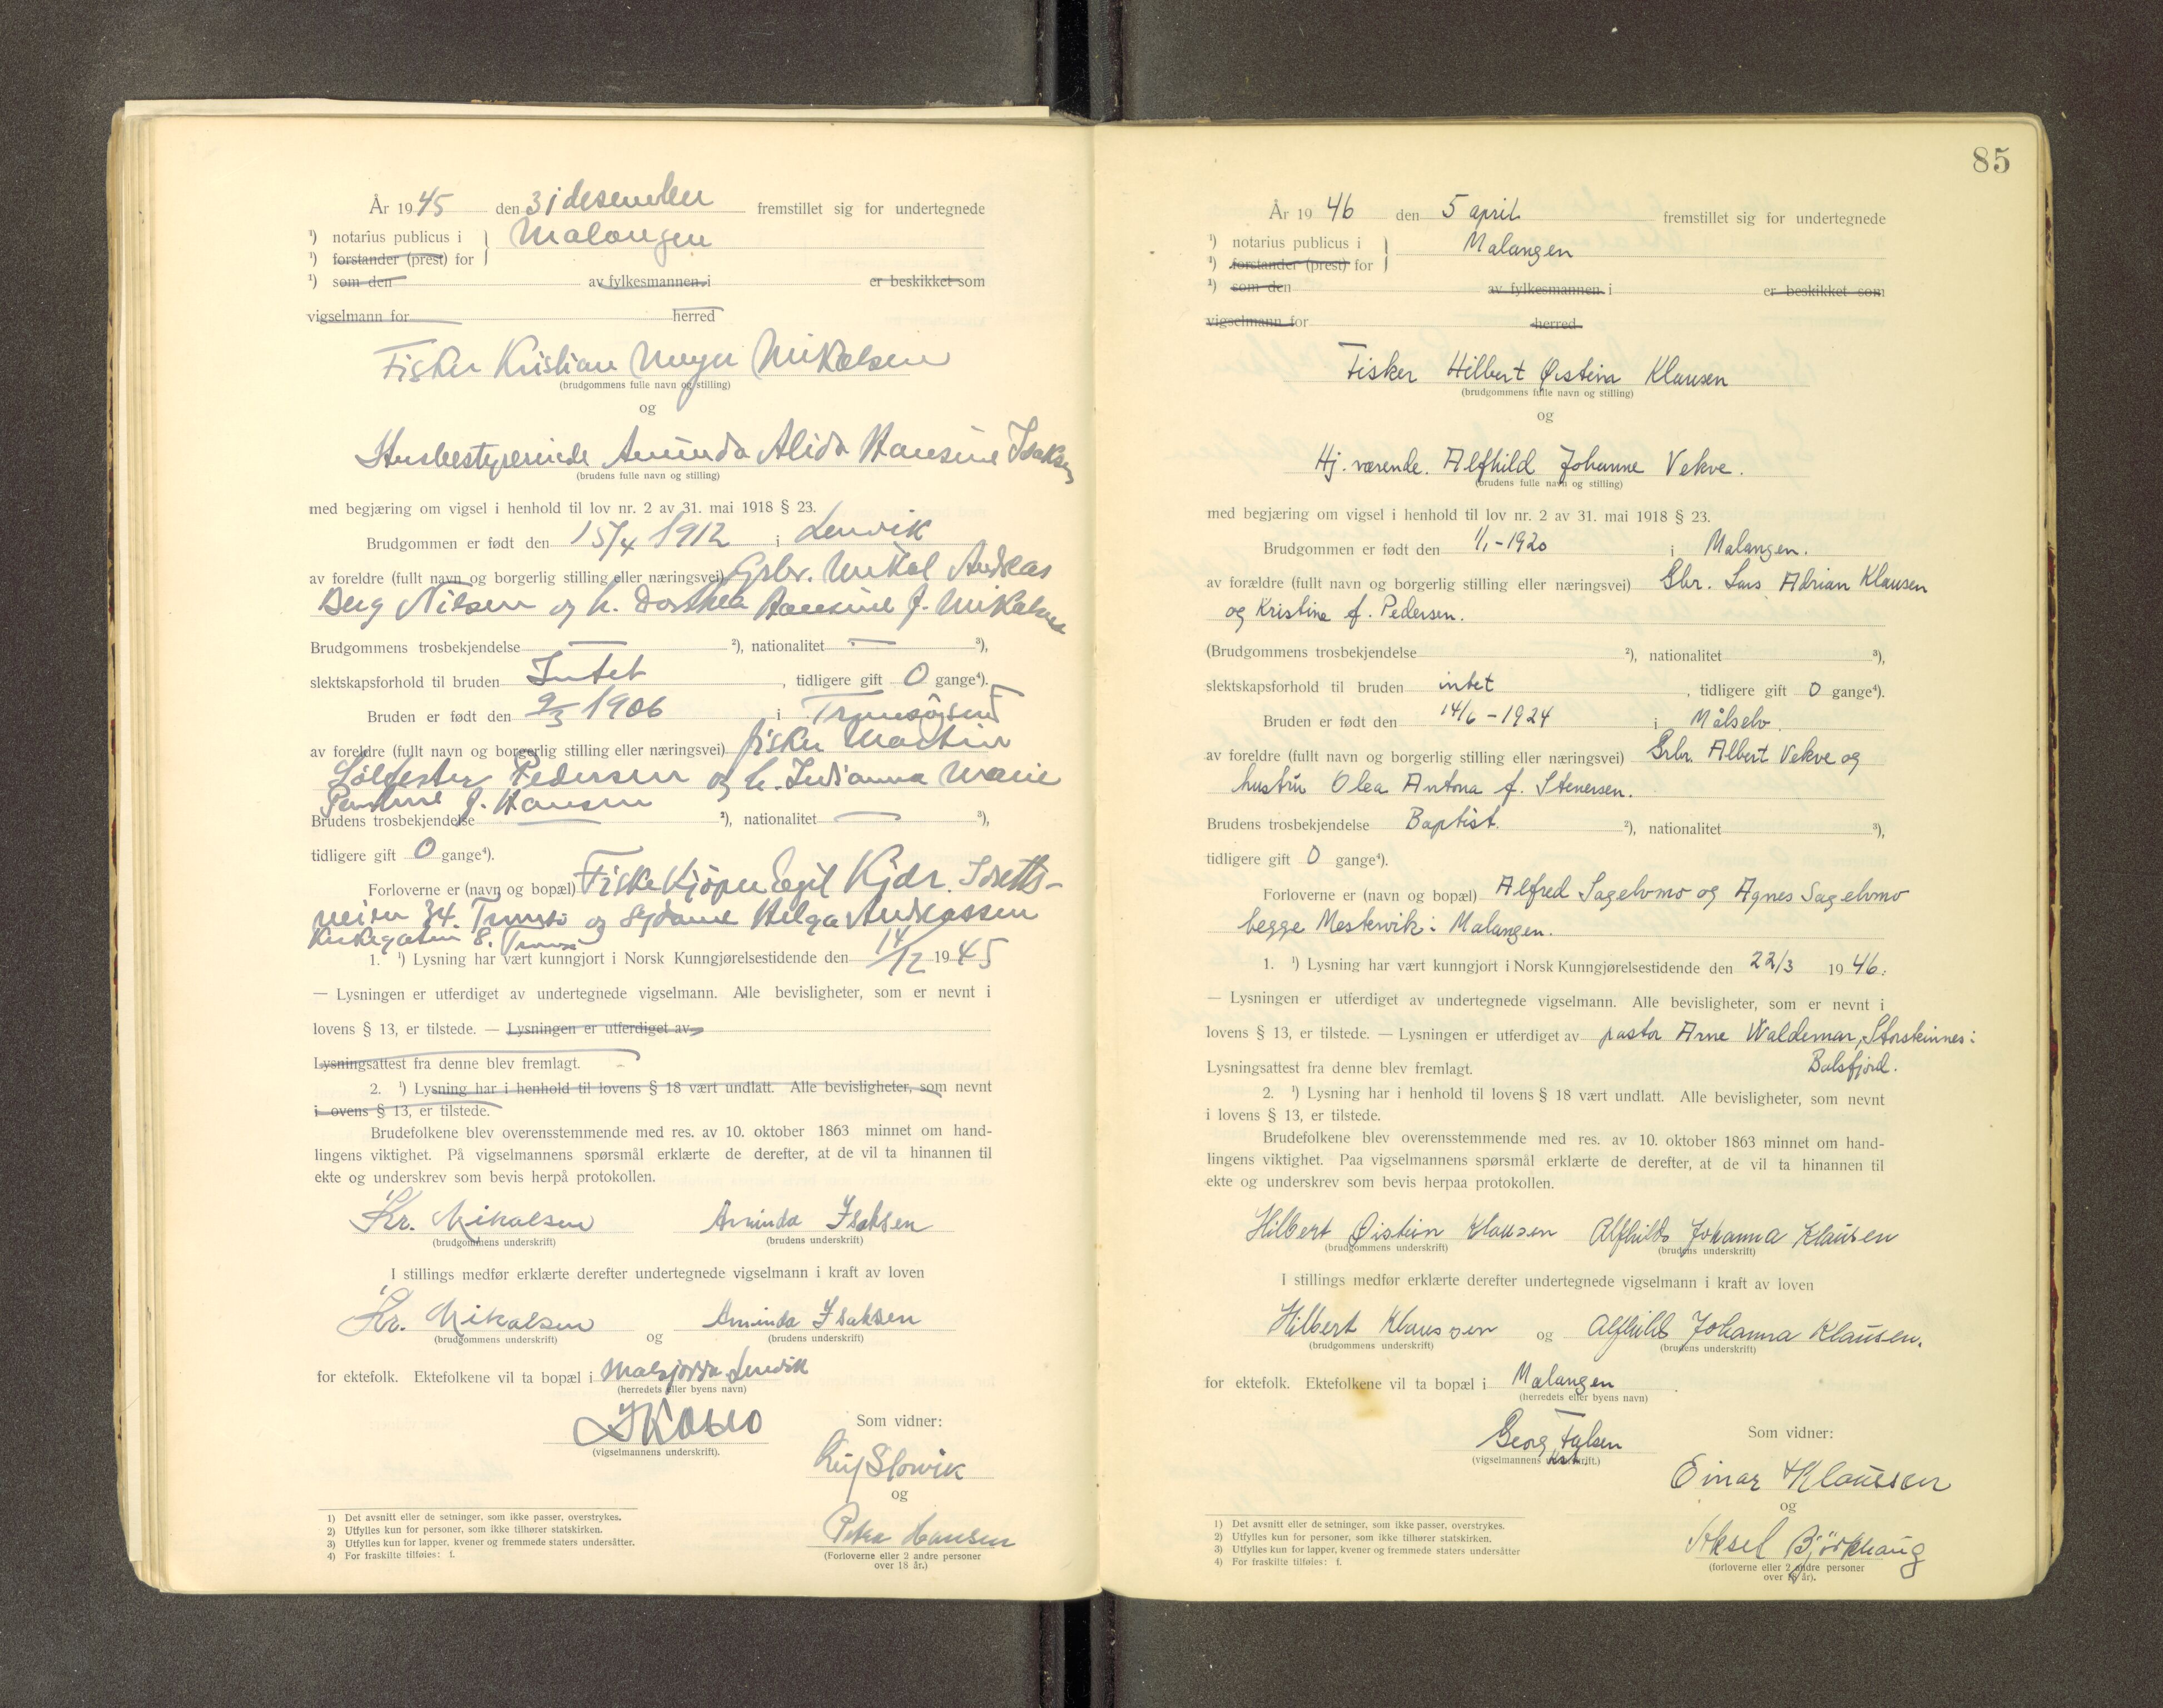 År 1945 den 31 desember fremstillet sig for undertegnede
¹) notarius publicus i } Malangen
¹) forstander (prest) for
¹) som den av fylkesmannen i er beskikket som
vigselmann for herred
Fisker Kristian Meyer Mikalsen
(brudgommens fulle navn og stilling)
og
Husbestyrerinde Aminda Alida Hansine Isaksen
(brudens fulle navn og stilling)
med begjæring om vigsel i henhold til lov nr. 2 av 31. mai 1918 § 23.
Brudgommen er født den 15/4 1912 i Lenvik
av foreldre (fullt navn og borgerlig stilling eller næringsvei) Gbr. Mikal Andreas
Berg Nilsen og h. Dorthea Hansine f. Mikalsen
Brudgommens trosbekjendelse — ²), nationalitet — ³),
slektskapsforhold til bruden Intet, tidligere gift 0 gange⁴).
Bruden er født den 9/3 1906 i Tromsøysund
av foreldre (fullt navn og borgerlig stilling eller næringsvei) fisker Martin
Pedersen og h. Indianna Marie
f. Hansen
Brudens trosbekjendelse — ²), nationalitet — ³),
tidligere gift 0 gange⁴).
Forloverne er (navn og bopæl) Fiskekjøper Egil Kjær. Idretts-
veien 34. Tromsø og sydame Helga Andreassen
Kirkegaten 8. Tromsø
1. ¹) Lysning har vært kunngjort i Norsk Kunngjørelsestidende den 14/12 1945
— Lysningen er utferdiget av undertegnede vigselmann. Alle bevisligheter, som er nevnt i
lovens § 13, er tilstede. — Lysningen er utferdiget av
Lysningsattest fra denne blev fremlagt.
2. ¹) Lysning har i henhold til lovens § 18 vært undlatt. Alle bevisligheter, som nevnt
i ovens § 13, er tilstede.
Brudefolkene blev overensstemmende med res. av 10. oktober 1863 minnet om hand-
lingens viktighet. På vigselmannens spørsmål erklærte de derefter, at de vil ta hinannen til
ekte og underskrev som bevis herpå protokollen.
Kr. Mikalsen Aminda Isaksen
(brudgommens underskrift) (brudens underskrift)
I stillings medfør erklærte derefter undertegnede vigselmann i kraft av loven
Kr. Mikalsen og Aminda Isaksen
(brudgommens underskrift) (brudens underskrift)
for ektefolk. Ektefolkene vil ta bopæl i Malsjorda Lenvik
(herredets eller byens navn)
(vigselmannens underskrift).
Som vidner:
Leif Slowik
og
Petra Hansen
(Forloverne eller 2 andre personer
over 18 år.)
1) Det avsnitt eller de setninger, som ikke passer, overstrykes.
2) Utfylles kun for personer, som ikke tilhører statskirken.
3) Utfylles kun for lapper, kvener og fremmede staters undersåtter.
4) For fraskilte tilføies: f.
85
År 1946 den 5 april fremstillet sig for undertegnede
¹) notarius publicus i } Malangen
¹) forstander (prest) for
¹) som den av fylkesmannen i er beskikket som
vigselmann for herred
Fisker Hilbert Østein Klausen
(brudgommens fulle navn og stilling)
og
Hj. værende. Alfhild Johanne Vekve.
(brudens fulle navn og stilling)
med begjæring om vigsel i henhold til lov nr. 2 av 31. mai 1918 § 23.
Brudgommen er født den 1/1-1920 i Malangen.
av forældre (fullt navn og borgerlig stilling eller næringsvei) Gbr. Lars Adrian Klausen
og Kristine f. Pedersen.
(Brudgommens trosbekjendelse ²), nationalitet ³),
slektskapsforhold til bruden intet, tidligere gift 0 gange⁴).
Bruden er født den 14/6-1924 i Målselv.
av foreldre (fullt navn og borgerlig stilling eller næringsvei) Grbr. Albert Vekve og
hustru Olea Antona f. Stenersen.
Brudens trosbekjendelse Baptist. ²), nationalitet ³),
tidligere gift 0 gange⁴).
Forloverne er (navn og bopæl) Alfred Sagelvmo og Agnes Sagelvmo
begge Mestervik i Malangen.
1. ¹) Lysning har vært kunngjort i Norsk Kunngjørelsestidende den 22/3 1946.
— Lysningen er utferdiget av undertegnede vigselmann. Alle bevisligheter, som er nevnt i
lovens § 13, er tilstede. — Lysningen er utferdiget av pastor Arne Waldemar, Storsteinnes i
Lysningsattest fra denne blev fremlagt. Balsfjord.
2. ¹) Lysning har i henhold til lovens § 18 vært undlatt. Alle bevisligheter, som nevnt
i lovens § 13, er tilstede.
Brudefolkene blev overensstemmende med res. av 10. oktober 1863 minnet om hand-
lingens viktighet. Paa vigselmannens spørsmål erklærte de derefter, at de vil ta hinannen til
ekte og underskrev som bevis herpaa protokollen.
Hilbert Øistein Klausen Alfhild Johanna Klausen
(brudgommens underskrift) (brudens underskrift)
I stillings medfør erklærte derefter undertegnede vigselmann i kraft av loven
Hilbert Klaussen og Alfhild Johanna Klausen.
(brudgommens underskrift) (brudens underskrift)
for ektefolk. Ektefolkene vil ta bopæl i Malangen
(herredets eller byens navn)
Georg Falsen
kst.
(vigselmannens underskrift.)
Som vidner:
Einar Klaussen
og
Aksel Björkhaug
(forloverne eller 2 andre personer
over 18 år).
1) Det avsnitt eller de setninger, som ikke passer, overstrykes.
2) Utfylles kun for personer, som ikke tilhører statskirken.
3) Utfylles kun for lapper, kvener og fremmede staters undersåtter
4) For fraskilte tilføies: f.